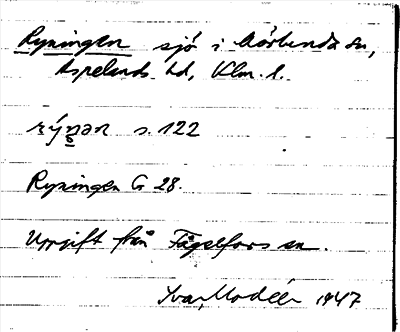 Ryningen sjö i Mörlunda sn,
Aspelands hd, Klm. l.
rýŋən s. 122
Ryningen G 28.
Uppgift från Fågelfors sn.
Ivar Modéer 1947